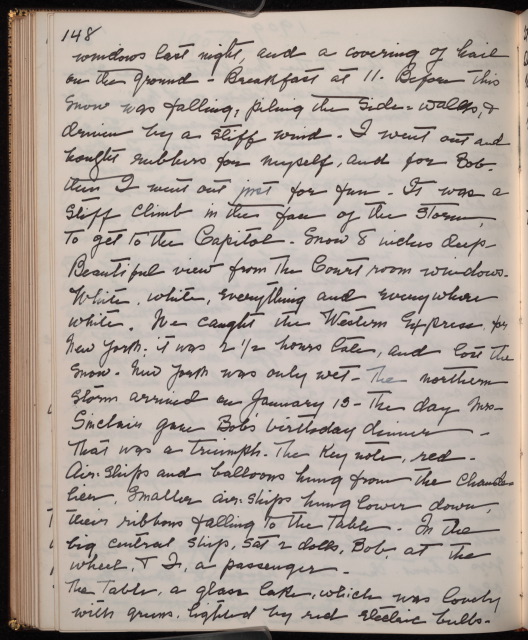 148
windows last night, and a covering of hail
on the ground - Breakfast at 11. Before this
snow was falling; piling the side-walks, &
driven by a stiff wind. I went out and
bought rubbers for myself, and for Bob.
then I went out just for fun. It was a
stiff climb in the face of the storm,
to get to the Capitol. Snow 8 inches deep.
Beautiful view from the Court room windows.
White, white, everything and everywhere
white. We caught the Western Express, for
New York; it was 2 1/2 hours late, and lost the
snow. New York was only wet - The northern
storm arrived on January 13 - the day Mrs.
Sinclair gave Bob's birthday dinner -
That was a triumph. The Key note, red -
Air-ships and balloons hung from the chande-
lier, smaller air-ships hung lower down,
their ribbons falling to the table - In the
big central ship, sat 2 dolls, Bob, at the
wheel, & I, a passenger -
The table, a glass lake, which was lovely
with greens, lighted by red electric bulbs.